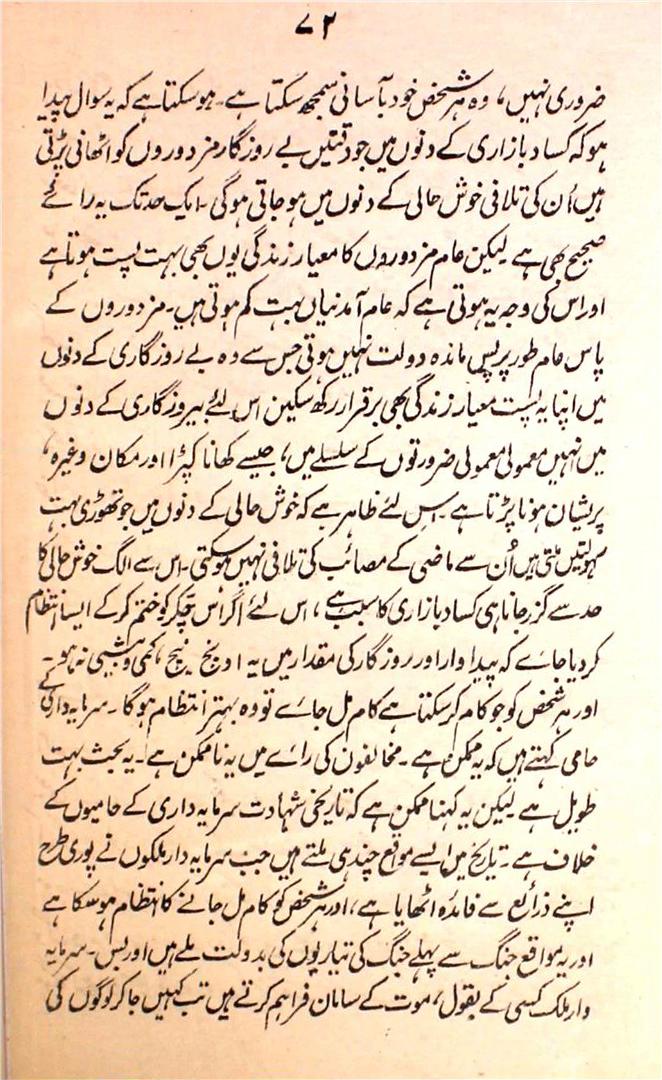 ۷۲
ضروری نہیں، وہ ہر شخص خود بآسانی سمجھ سکتا ہے۔ ہوسکتا ہے کہ یہ سوال پیدا
ہو کہ کساد بازاری کے دنوں میں جو دقتیں بے روزگار مزدوروں کو اٹھانی پڑتی
ہیں اُن کی تلافی خوش حالی کے دنوں میں ہو جاتی ہوگی۔ ایک حد تک یہ رائے
صحیح بھی ہے لیکن عام مزدوروں کا معیار زندگی یوں بھی بہت پست ہوتا ہے
اور اس کی وجہ یہ ہوتی ہے کہ عام آمدنیاں بہت کم ہوتی ہیں۔ مزدوروں کے
پاس عام طور پر پس ماندہ دولت نہیں ہوتی جس سے وہ بے روزگاری کے دنوں
میں اپنا یہ پست معیار زندگی بھی برقرار رکھ سکین اس لئے بیروزگاری کے دنوں
میں انہیں معمولی معمولی ضرورتوں کے سلسلے میں، جیسے کھانا کپڑا اور مکان وغیرہ،
پریشان ہونا پڑتا ہے۔ اس لئے ظاہر ہے کہ خوش حالی کے دنوں میں جو تھوڑی بہت
سہولتیں ملتی ہیں اُن سے ماضی کے مصائب کی تلافی نہیں ہوسکتی۔ اس سے الگ خوش حالی کا
حد سے گزر جانا ہی کساد بازاری کا سبب ہے، اس لئے اگر اس چکر کو ختم کر کے ایسا انتظام
کر دیا جاے کہ پیداوار اور روزگار کی مقدار میں یہ اونچ نیچ، کمی و بیشی نہ ہو۔
اور ہر شخص کو جو کام کر سکتا ہے کام مل جاے تو وہ بہتر انتظام ہوگا۔ سرمایہ داری کے
حامی کہتے ہیں کہ یہ ممکن ہے۔ مخالفون کی راے میں یہ ناممکن ہے۔ یہ بحث بہت
طویل ہے لیکن یہ کہنا ممکن ہے کہ تاریخی شہادت سرمایہ داری کے حامیوں کے
خلاف ہے۔ تاریخ میں ایسے مواقع چند ہی ملتے ہیں جب سرمایہ دار ملکوں نے پوری طرح
اپنے ذرائع سے فائدہ اٹھایا ہے، اور ہر شخص کو کام مل جانے کا انتظام ہوسکا ہے
اور یہ مواقع جنگ سے پہلے جنگ کی تیاریوں کی بدولت ملے ہیں اور بس۔ سرمایہ
دار ملک کسی کے بقول، موت کے سامان فراہم کرتے ہیں تب کہیں جا کر لوگوں کی